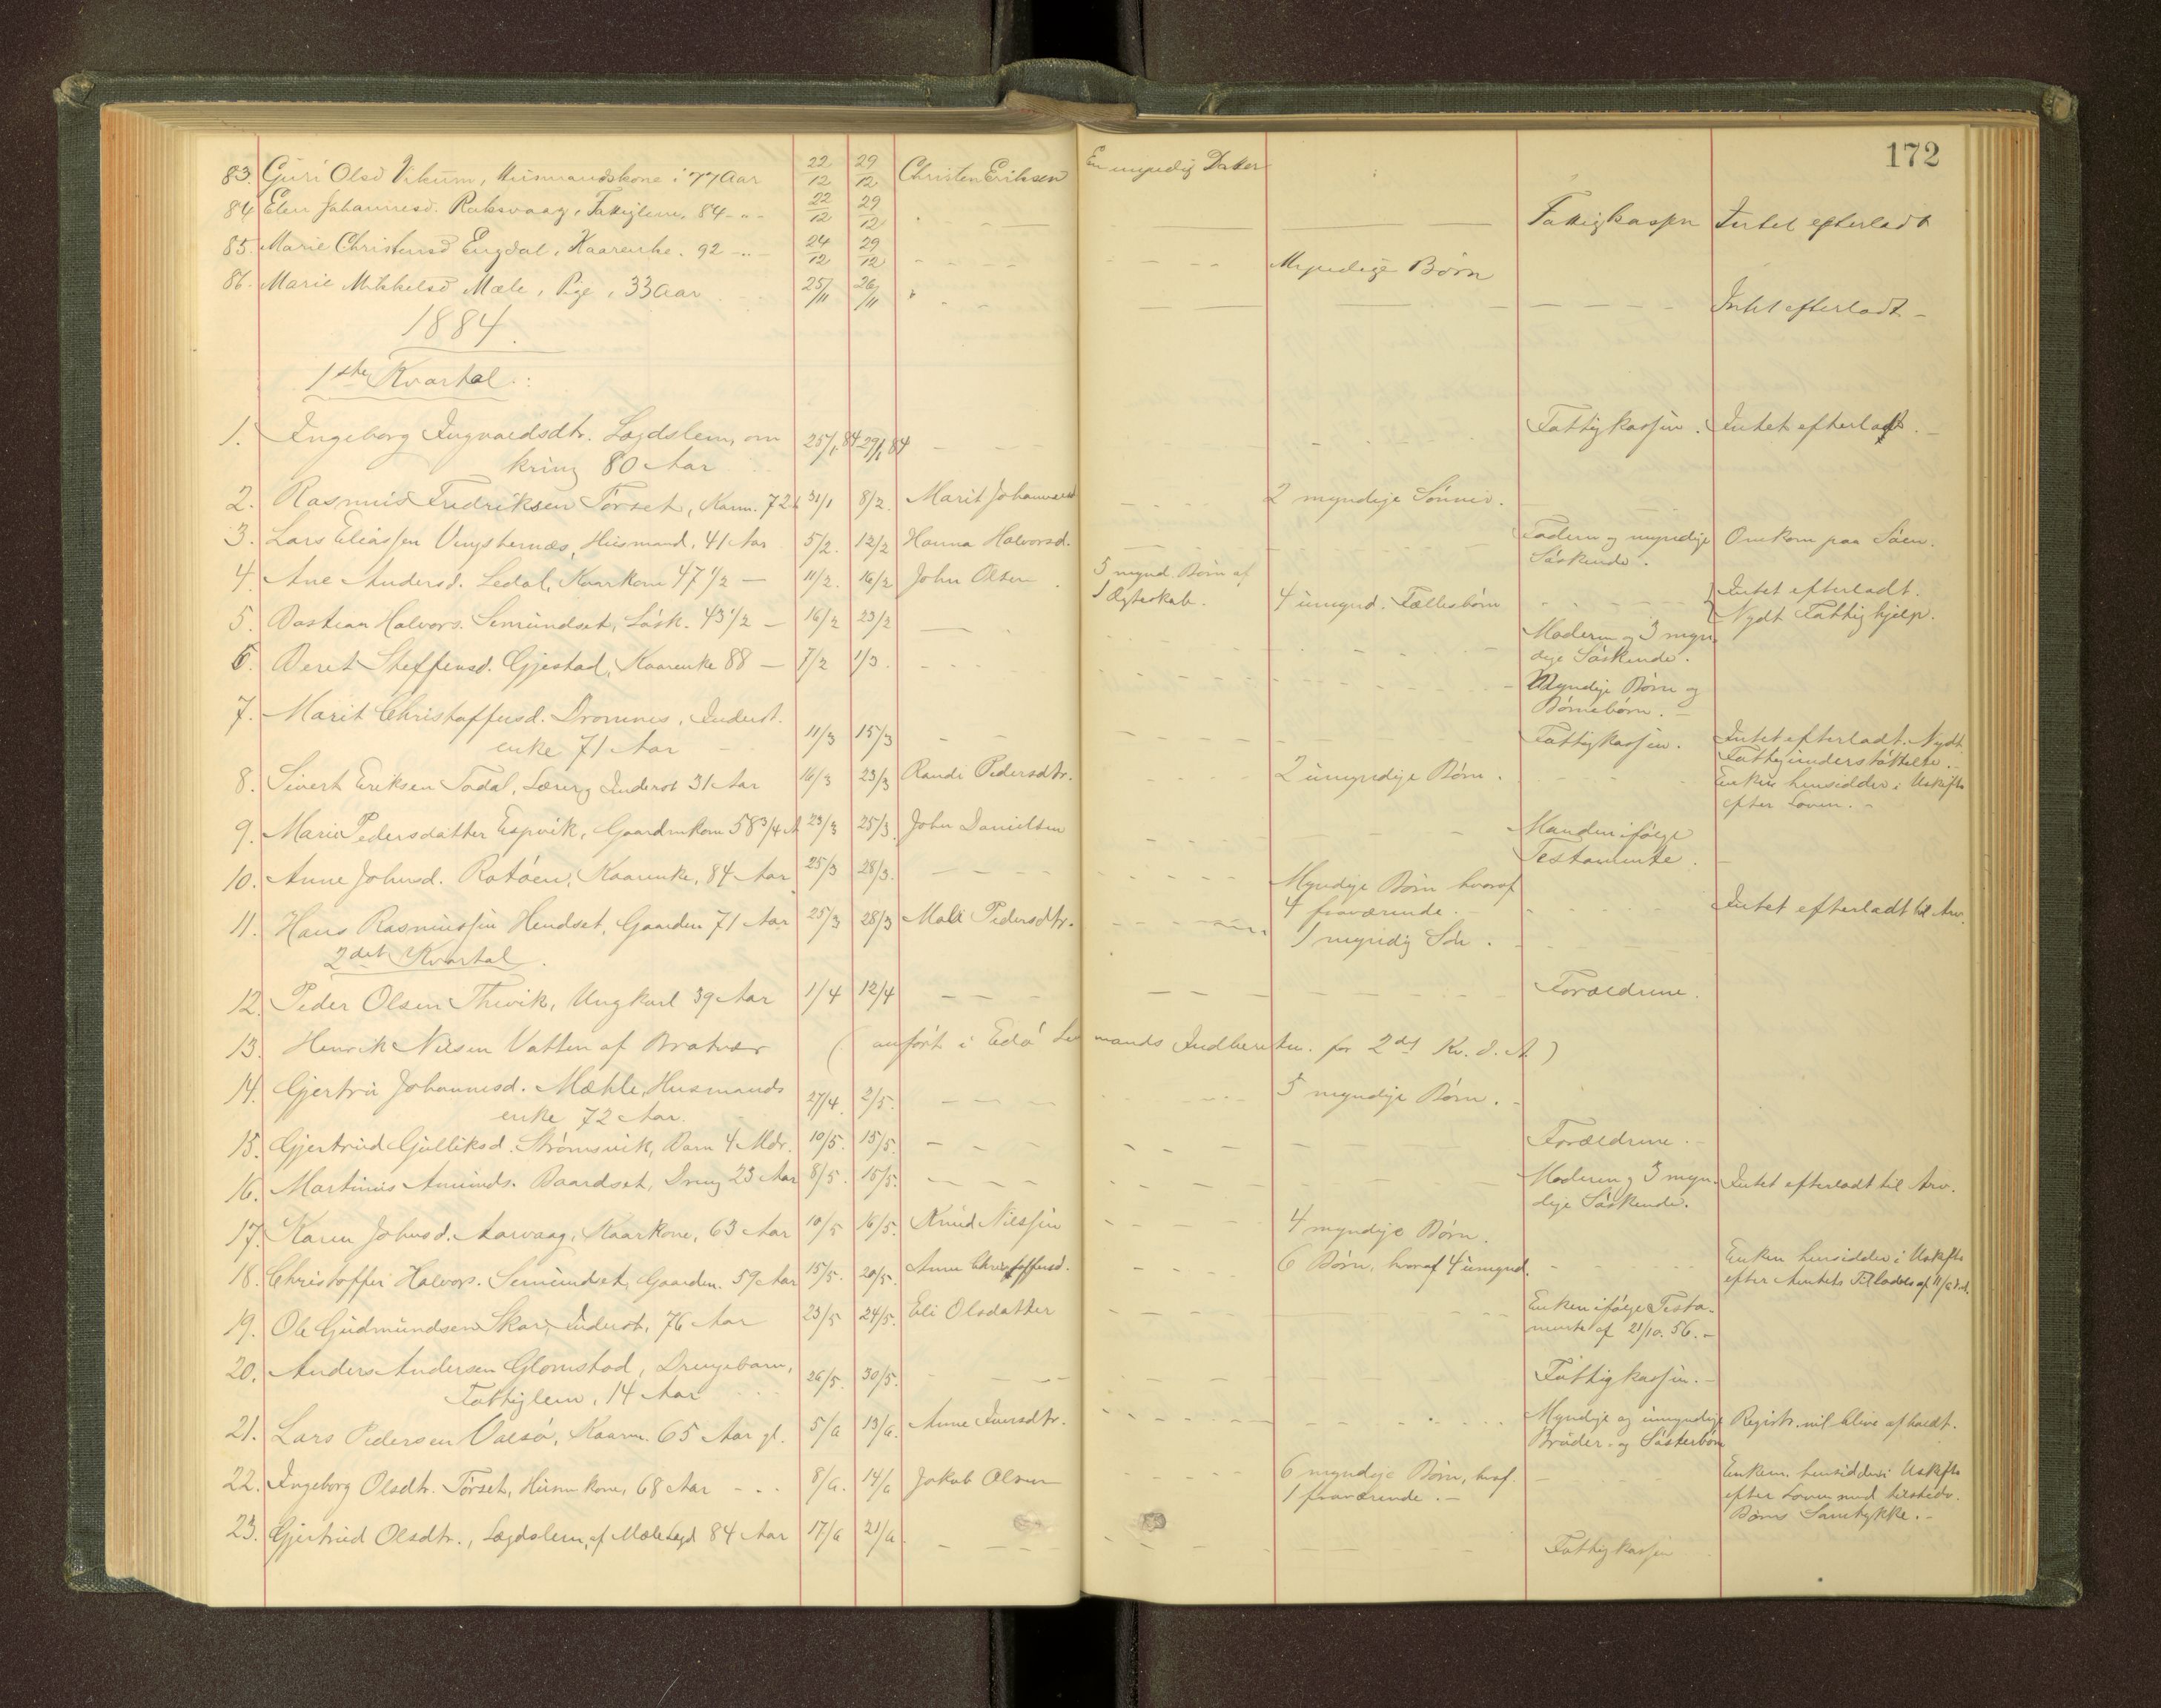 172
83. Guri Olsd Vikum, Husmandskone i 77 Aar 22/12 29/12 Christen Eriksen En myndig Datter
84 Elen Johannesd. Roksvaag, Fattiglem, 84 -"- 22/12 29/12 Fattigkassen Intet efterladt
85. Marie Christensd Engdal, Kaarenke. 92 -"- 24/12 29/12 Myndige Børn
86. Marie Mikkelsd Mæle, Pige, 33 Aar 25/11 26/11 Intet efterladt -
1884.
1ste Kvartal.
1. Ingeborg Ingvaldsdtr. Lægdslem, om 25/1 84 29/1 84 Fattigkassen. Intet efterladt. -
kring 80 Aar
2. Rasmus Fredriksen Tørset, Kaarm. 72 31/1 8/2. Marit Johannesd 2 myndige Sønner.
3. Lars Eliassen Vingsternæs, Husmand, 41 Aar 5/2. 12/2 Hanna Halvorsd. Faderen og myndige Omkom paa Søen.
Søskende.
4. Ane Andersd. Ledal, Kaarkone 47 1/2 — 11/2. 16/2 John Olsen 5 mynd. Børn af 4 umynd. Fællesbørn Intet efterladt.
1 Ægteskab. Nydt Fattighjelp.
5. Bastian Halvors. Semundset, Løsk. 43 1/2 — 16/2 23/2 Moderen og 3 myn
dige Søskende.
6. Beret Steffensd. Gjestad, Kaarenke 88 — 7/2 1/3. Myndige Børn og
Børnebørn. -
7. Marit Christoffersd. Dromnes, Inderst. 11/3 15/3 Fattigkassen. Intet efterladt. Nydt
enke 71 Aar Fattigunderstøttelse. -
8. Sivert Eriksen Todal, Lærer og Inderst 31 Aar 16/3 23/3 Randi Pedersdtr. 2 umyndige Børn. Enken hensidder i Uskifte
efter Loven. -
9. Marie Pedersdatter Espvik, Gaardmkone 58 3/4 A 23/3 25/3. John Danielsen Manden ifølge
Testamente.
10. Anne Johnsd. Rotøen, Kaarenke, 84 Aar 25/3 28/3. Myndige Børn hvoraf Intet efterladt til Arv.
4 fraværende.
11. Hans Rasmussen Hendset, Gaardm 71 Aar 25/3 28/3 Mali Pedersdtr. 1 myndig Søn.
2det Kvartal.
12. Peder Olsen Thrvik, Ungkarl 39 Aar 1/4 12/4 Forældrene.
13. Henrik Nilsen Vatten af Bratvær (anført i Edø Lensmands Indberetn. for 2det Kv. d. A.)
14. Gjertru Johannesd. Mæhle, Husmands 27/4. 2/5. 5 myndige Børn. -
enke 72 Aar.
15. Gjertrud Gulliksd. Strømsvik, Barn 4 Mdr. 10/5. 15/5. Forældrene. -
16. Martinus Amunds. Baardset, Dreng 23 Aar 8/5 15/5. Moderen og 3 myn- Intet efterladt til Arv.
dige Søskende.
17. Karen Johnsd. Aarvaag, Kaarkone, 63 Aar 10/5 16/5. Knud Nilssen 4 myndige Børn.
18. Christoffer Halvors. Semundset, Gaardm. 59 Aar 15/5. 20/5. Anne Christoffersd. 6 Børn, hvoraf 4 umynd. Enken hensidder i Uskifte
efter Amtets Tilladels af 11/6 d.A.
19. Ole Gudmundsen Skar, Inderst, 76 Aar 23/5 24/5. Eli Olsdatter Enken ifølge Testa-
mente af 21/10. 56. -
20. Anders Andersen Glomstad, Drengebarn, 26/5. 30/5. Fattigkassen. -
Fattiglem, 14 Aar
21. Lars Pedersen Valsø, Kaarm. 65 Aar gl. 5/6 13/6. Anne Iversdtr. Myndige og umyndige Registr. vil blive afholdt.
Brøder- og Søsterbørn
22. Ingeborg Olsdtr. Tørset, Husmkone, 68 Aar 8/6. 14/6 Jakob Olsen 6 myndige Børn, hvaf. Enkem. hensidder i Uskifte
1 fraværende. - efter Loven med tilstedv.
Børns Samtykke. -
23. Gjertrud Olsdtr., Lægdslem, af Mæle Lægd 84 Aar 17/6 21/6. Fattigkassen